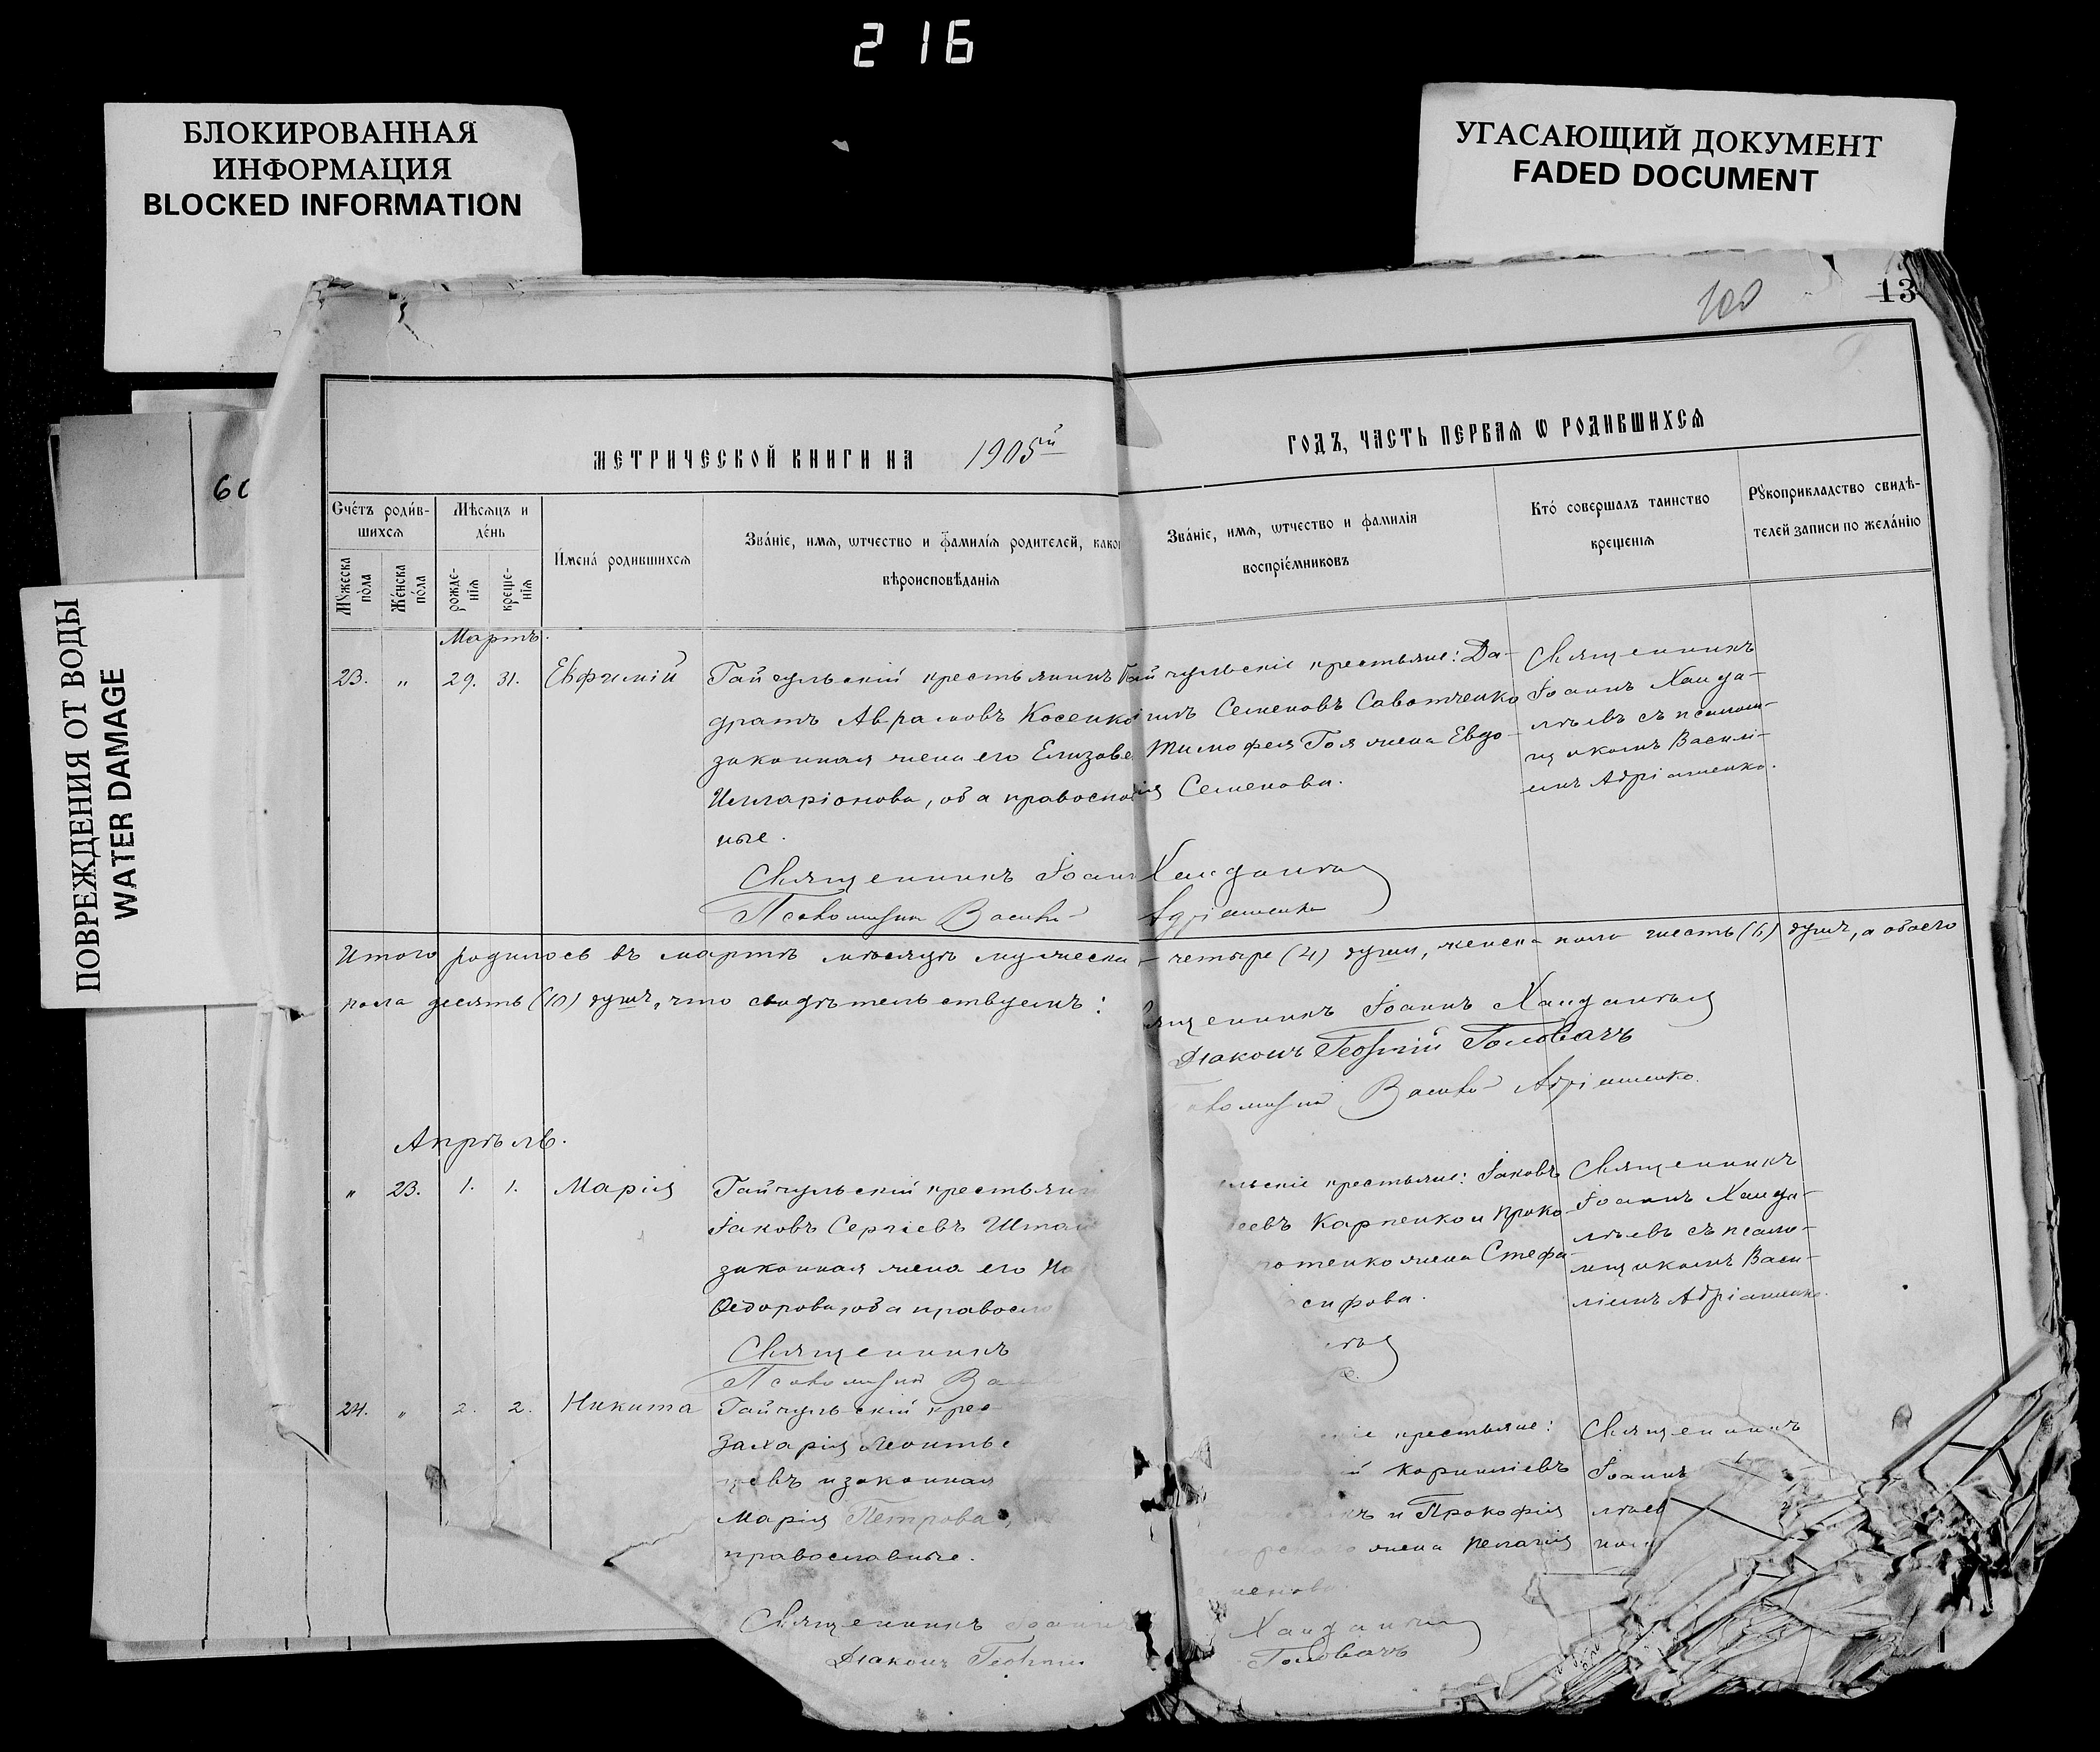 216
БЛОКИРОВАННАЯ
ИНФОРМАЦИЯ
BLOCKED INFORMATION
УГАСАЮЩИЙ ДОКУМЕНТ
FADED DOCUMENT
ПОВРЕЖДЕНИЯ ОТ ВОДЫ
WATER DAMAGE
60
100
13
МЕТРИЧЕСКОЙ КНИГИ НА 1905й
ГОДЪ, ЧАСТЬ ПЕРВАЯ Ѡ РОДИВШИХСЯ
Счетъ родив-
шихся
Мужеска
пола
Женска
пола
Мѣсяцъ и
день
рожде-
нія
креще-
нія
Имена родившихся
Званіе, имя, ѡтчество и фамилія родителей, како
вѣроисповѣданія
Званіе, имя, ѡтчество и фамилія
воспріемниковъ
Кто совершалъ таинство
крещенія
Рукоприкладство свидѣ-
телей записи по желанію
Мартъ.
23. " 29. 31. Евфимій
Гайчульскій крестьянинъ
дратъ Аврамовъ Косенко
законная жена его Елизаве
Илларіонова, оба правосла
ные.
Священникъ Іоанн
Псаломщик Васили
чульскіе крестьяне: Да-
Семеновъ Саватченко
Тимофея Гоя жена Евдо-
Семенова.
Хандалѣев
Адріашенко
Священникъ
Іоаннъ Ханда-
лѣевъ съ псалом-
щикомъ Василі-
емъ Адріашенко.
Итого родилось въ мартѣ мѣсяцѣ мужеска четыре (4) души, женска пола шесть (6) душъ, а обоего
пола десять (10) душъ, что свидѣтельствуемъ:
Іоаннъ Хандалѣев
Діаконъ Георгій Головачъ
Васили Адріашенко.
Апрѣль.
" 23. 1. 1. Марія
Гайчульскій крестьянин
Іаковъ Сергіевъ
законная жена его
Ѳедорова, оба правосла
Священникъ
Псаломщик Ва
крестьяне: Іаковъ
Карпенко и Проко-
жена Стефа-
сифова.
Священникъ
Іоаннъ Ханда-
лѣевъ съ псалом-
щикомъ Васи-
ліемъ Адріашенко.
24. " 2. 2. Никита
Гайчульскій крес
Захарія Леонтье
цевъ и законная
Марія Петрова,
православные.
Священникъ Іоаннъ
Діаконъ Георгій
крестьяне:
Корниліевъ
и Прокофія
жена Пелагія
Хандалѣев
Головачъ
Священникъ
Іоаннъ
лѣев